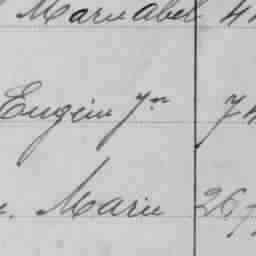 Marie Abel 4
Eugène Jn 74
. Marie 267